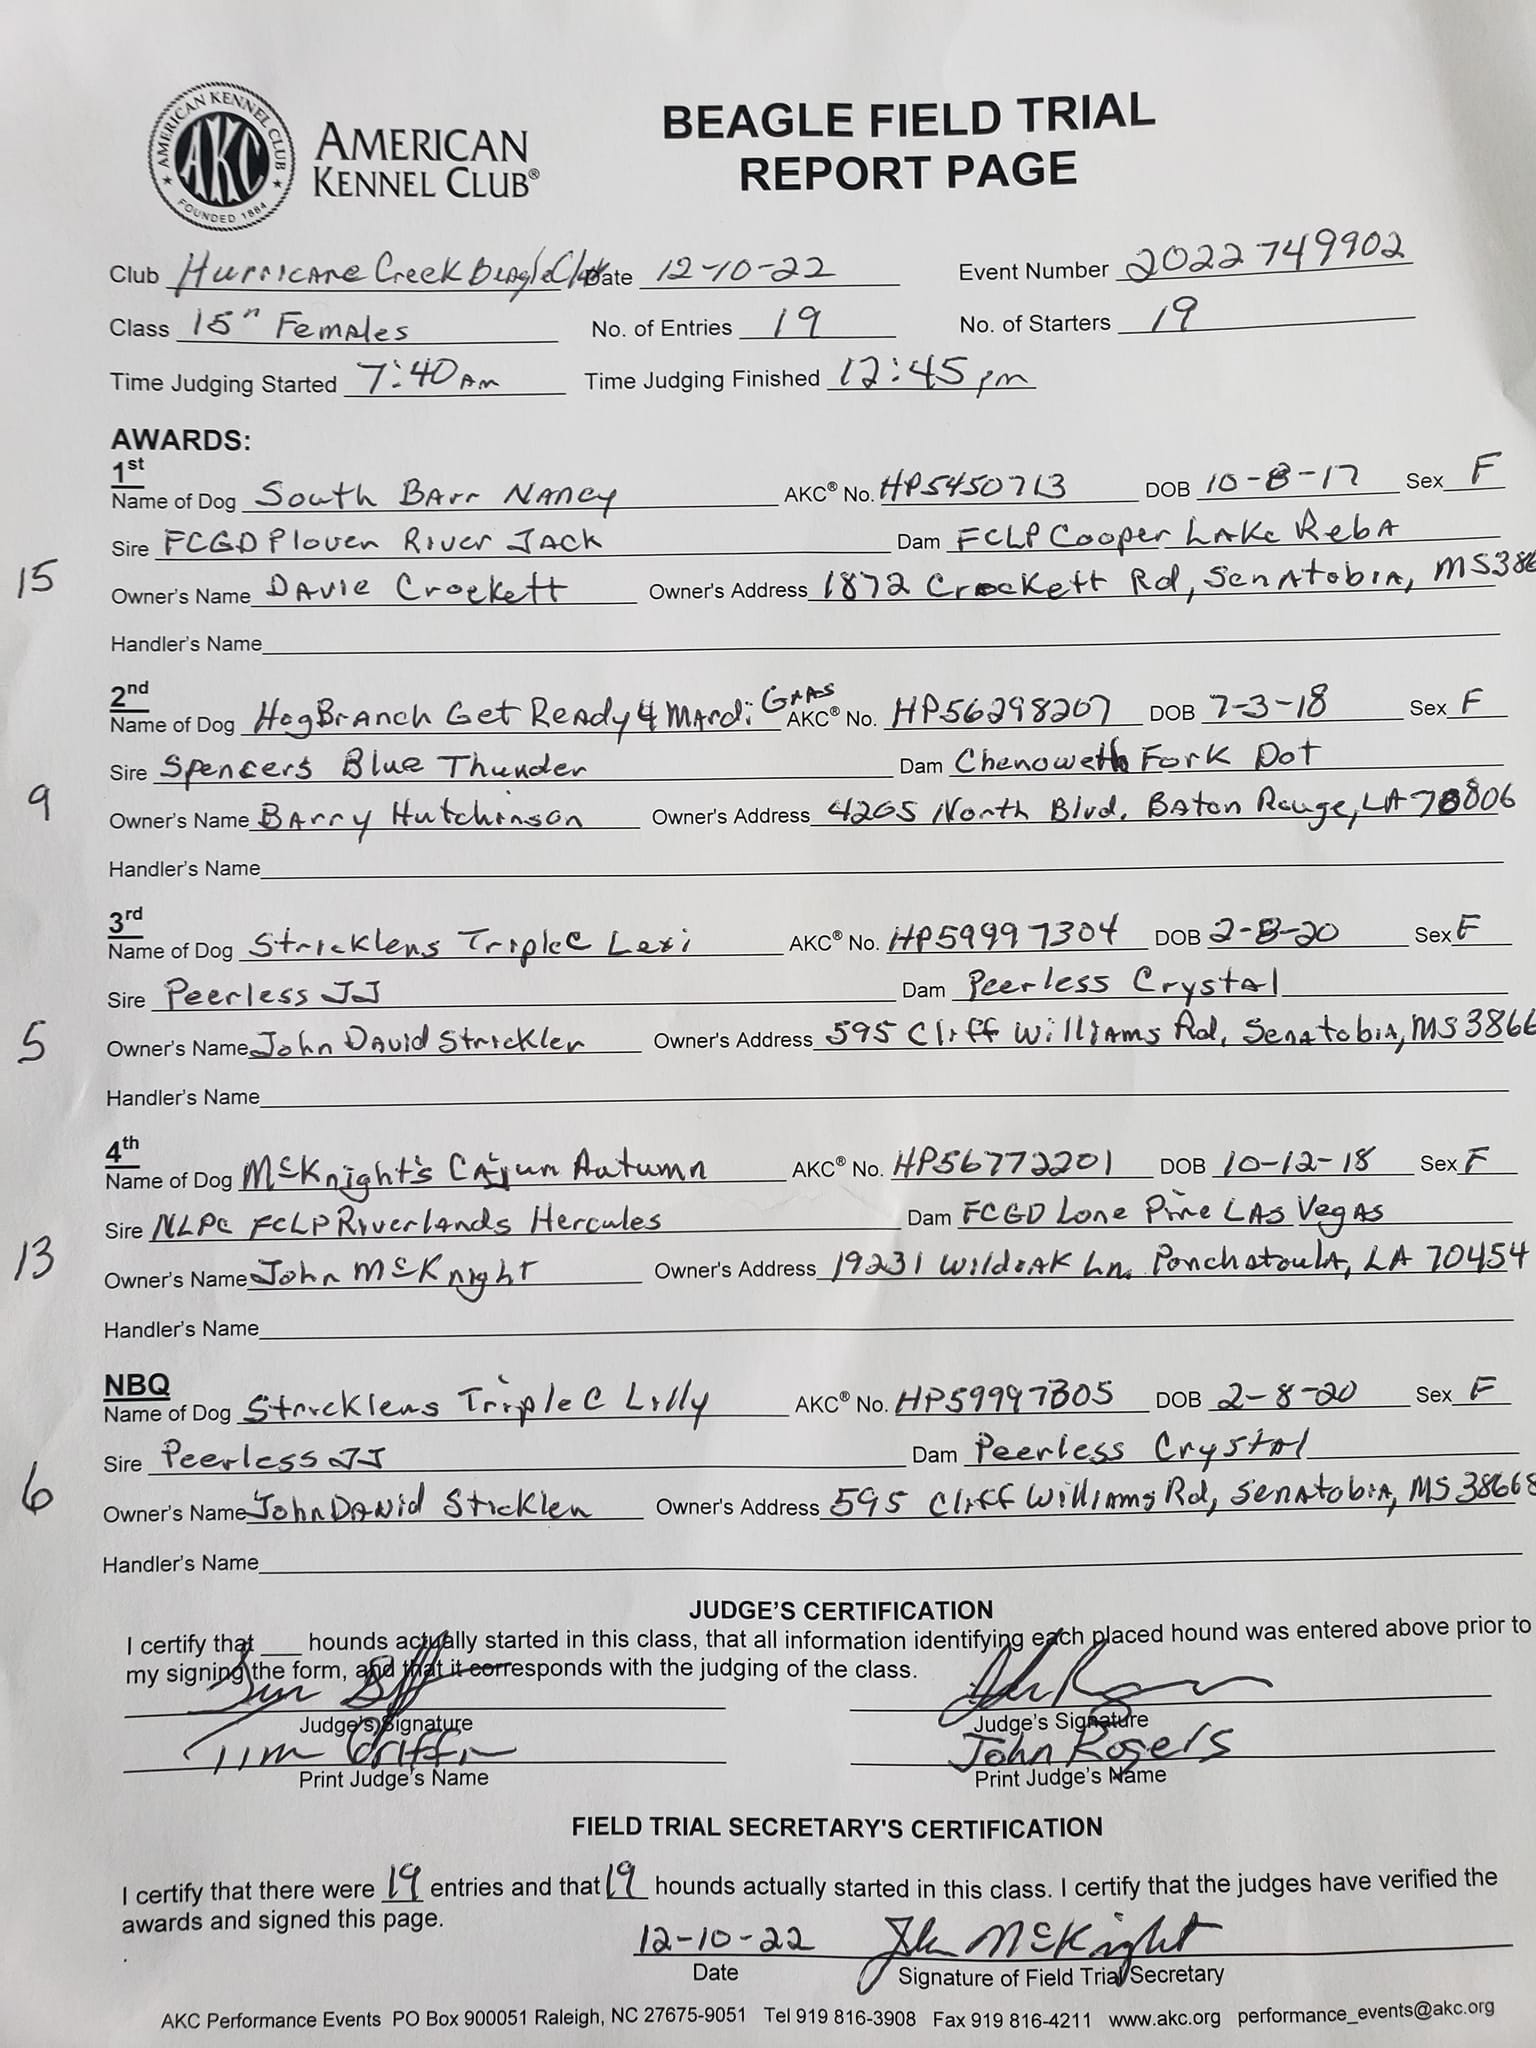 AMERICAN KENNEL CLUB
AKC
FOUNDED 1884
AMERICAN
KENNEL CLUB®
BEAGLE FIELD TRIAL
REPORT PAGE
Club Hurricane Creek Beagle Club Date 12-10-22 Event Number 2022749902
Class 15" Females No. of Entries 19 No. of Starters 19
Time Judging Started 7:40 Am Time Judging Finished 12:45 pm
AWARDS:
1st
Name of Dog South Barr Nancy AKC® No. HP5450713 DOB 10-8-17 Sex F
Sire FCGD Plover River Jack Dam FCLP Cooper Lake Reba
15
Owner's Name Davie Crockett Owner's Address 1872 Crockett Rd, Senatobia, MS 386
Handler's Name
2nd
Name of Dog HogBranch Get Ready 4 Mardi Gras AKC® No. HP56298207 DOB 7-3-18 Sex F
Sire Spencers Blue Thunder Dam Chenoweth Fork Dot
9
Owner's Name Barry Hutchinson Owner's Address 4205 North Blvd. Baton Rouge, LA 70806
Handler's Name
3rd
Name of Dog Stricklens Triple C Lexi AKC® No. HP59997304 DOB 2-8-20 Sex F
Sire Peerless JJ Dam Peerless Crystal
5
Owner's Name John David Stricklen Owner's Address 595 Cliff Williams Rd, Senatobia, MS 3866
Handler's Name
4th
Name of Dog McKnight's Cajun Autumn AKC® No. HP56772201 DOB 10-12-18 Sex F
Sire NLPC FCLP Riverlands Hercules Dam FCGD Lone Pine Las Vegas
13
Owner's Name John McKnight Owner's Address 19231 Wildoak Ln. Ponchatoula, LA 70454
Handler's Name
NBQ
Name of Dog Stricklens Triple C Lilly AKC® No. HP59997305 DOB 2-8-20 Sex F
Sire Peerless JJ Dam Peerless Crystal
6
Owner's Name John David Stricklen Owner's Address 595 Cliff Williams Rd, Senatobia, MS 38668
Handler's Name
JUDGE'S CERTIFICATION
I certify that ___ hounds actually started in this class, that all information identifying each placed hound was entered above prior to
my signing the form, and that it corresponds with the judging of the class.
Judge's Signature Judge's Signature
Tim Griffin John Rogers
Print Judge's Name Print Judge's Name
FIELD TRIAL SECRETARY'S CERTIFICATION
I certify that there were 19 entries and that 19 hounds actually started in this class. I certify that the judges have verified the
awards and signed this page.
12-10-22 John McKnight
Date Signature of Field Trial Secretary
AKC Performance Events PO Box 900051 Raleigh, NC 27675-9051 Tel 919 816-3908 Fax 919 816-4211 www.akc.org performance_events@akc.org